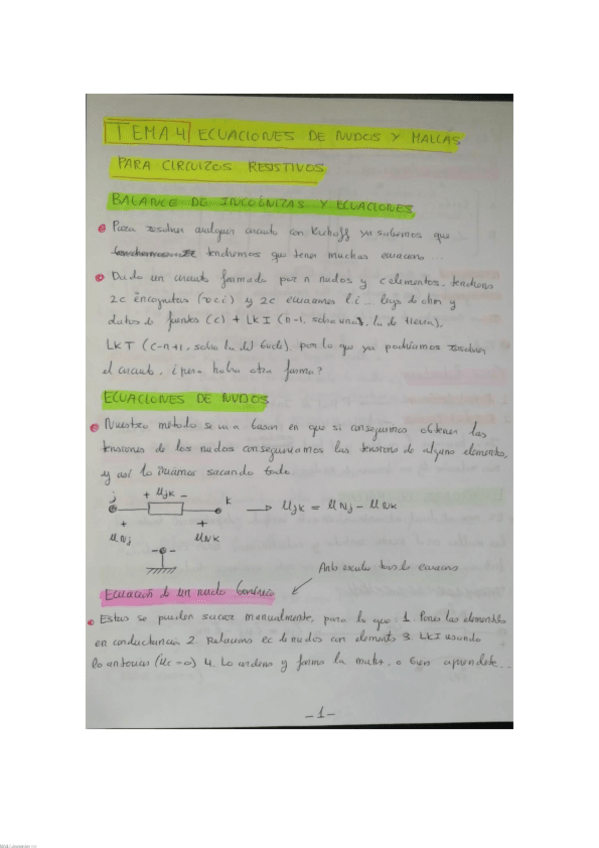 TEMA 4 ECUACIONES DE NUDOS Y MALLAS
PARA CIRCUITOS RESISTIVOS
BALANCE DE INCOGNITAS Y ECUACIONES
Para resolver cualquier circuito con Kirhoff ya sabemos que
tendremos que tener muchas ecuaciones...
Dado un circuito formado por n nudos y c elementos, tendremos
2c incognitas (v c i) y 2c ecuaciones l.i. leyes de ohm y
datos de fuentes (c) + LKI (n-1, sobra una, la de tierra),
LKT (c-n+1, sobra la del bucle), por lo que ya podríamos resolver
el circuito, ¿pero habrá otra forma?
ECUACIONES DE NUDOS
Nuestro método se va a basar en que si conseguimos obtener las
tensiones de los nudos conseguiríamos las tensiones de alguno elementos,
y así lo iríamos sacando todo
j + Ujk - k → Ujk = UNj - UNk
+ +
UNj UNk
- -
Ecuación de un nudo Genérico
Estas se pueden sacar manualmente, para lo que: 1. Pones los elementos
en conductancia 2. Relaciono ec de nudos con elementos 3. LKI usando
lo anterior 4. Lo ordeno y formo la matriz, o bien aprendete...
-1-